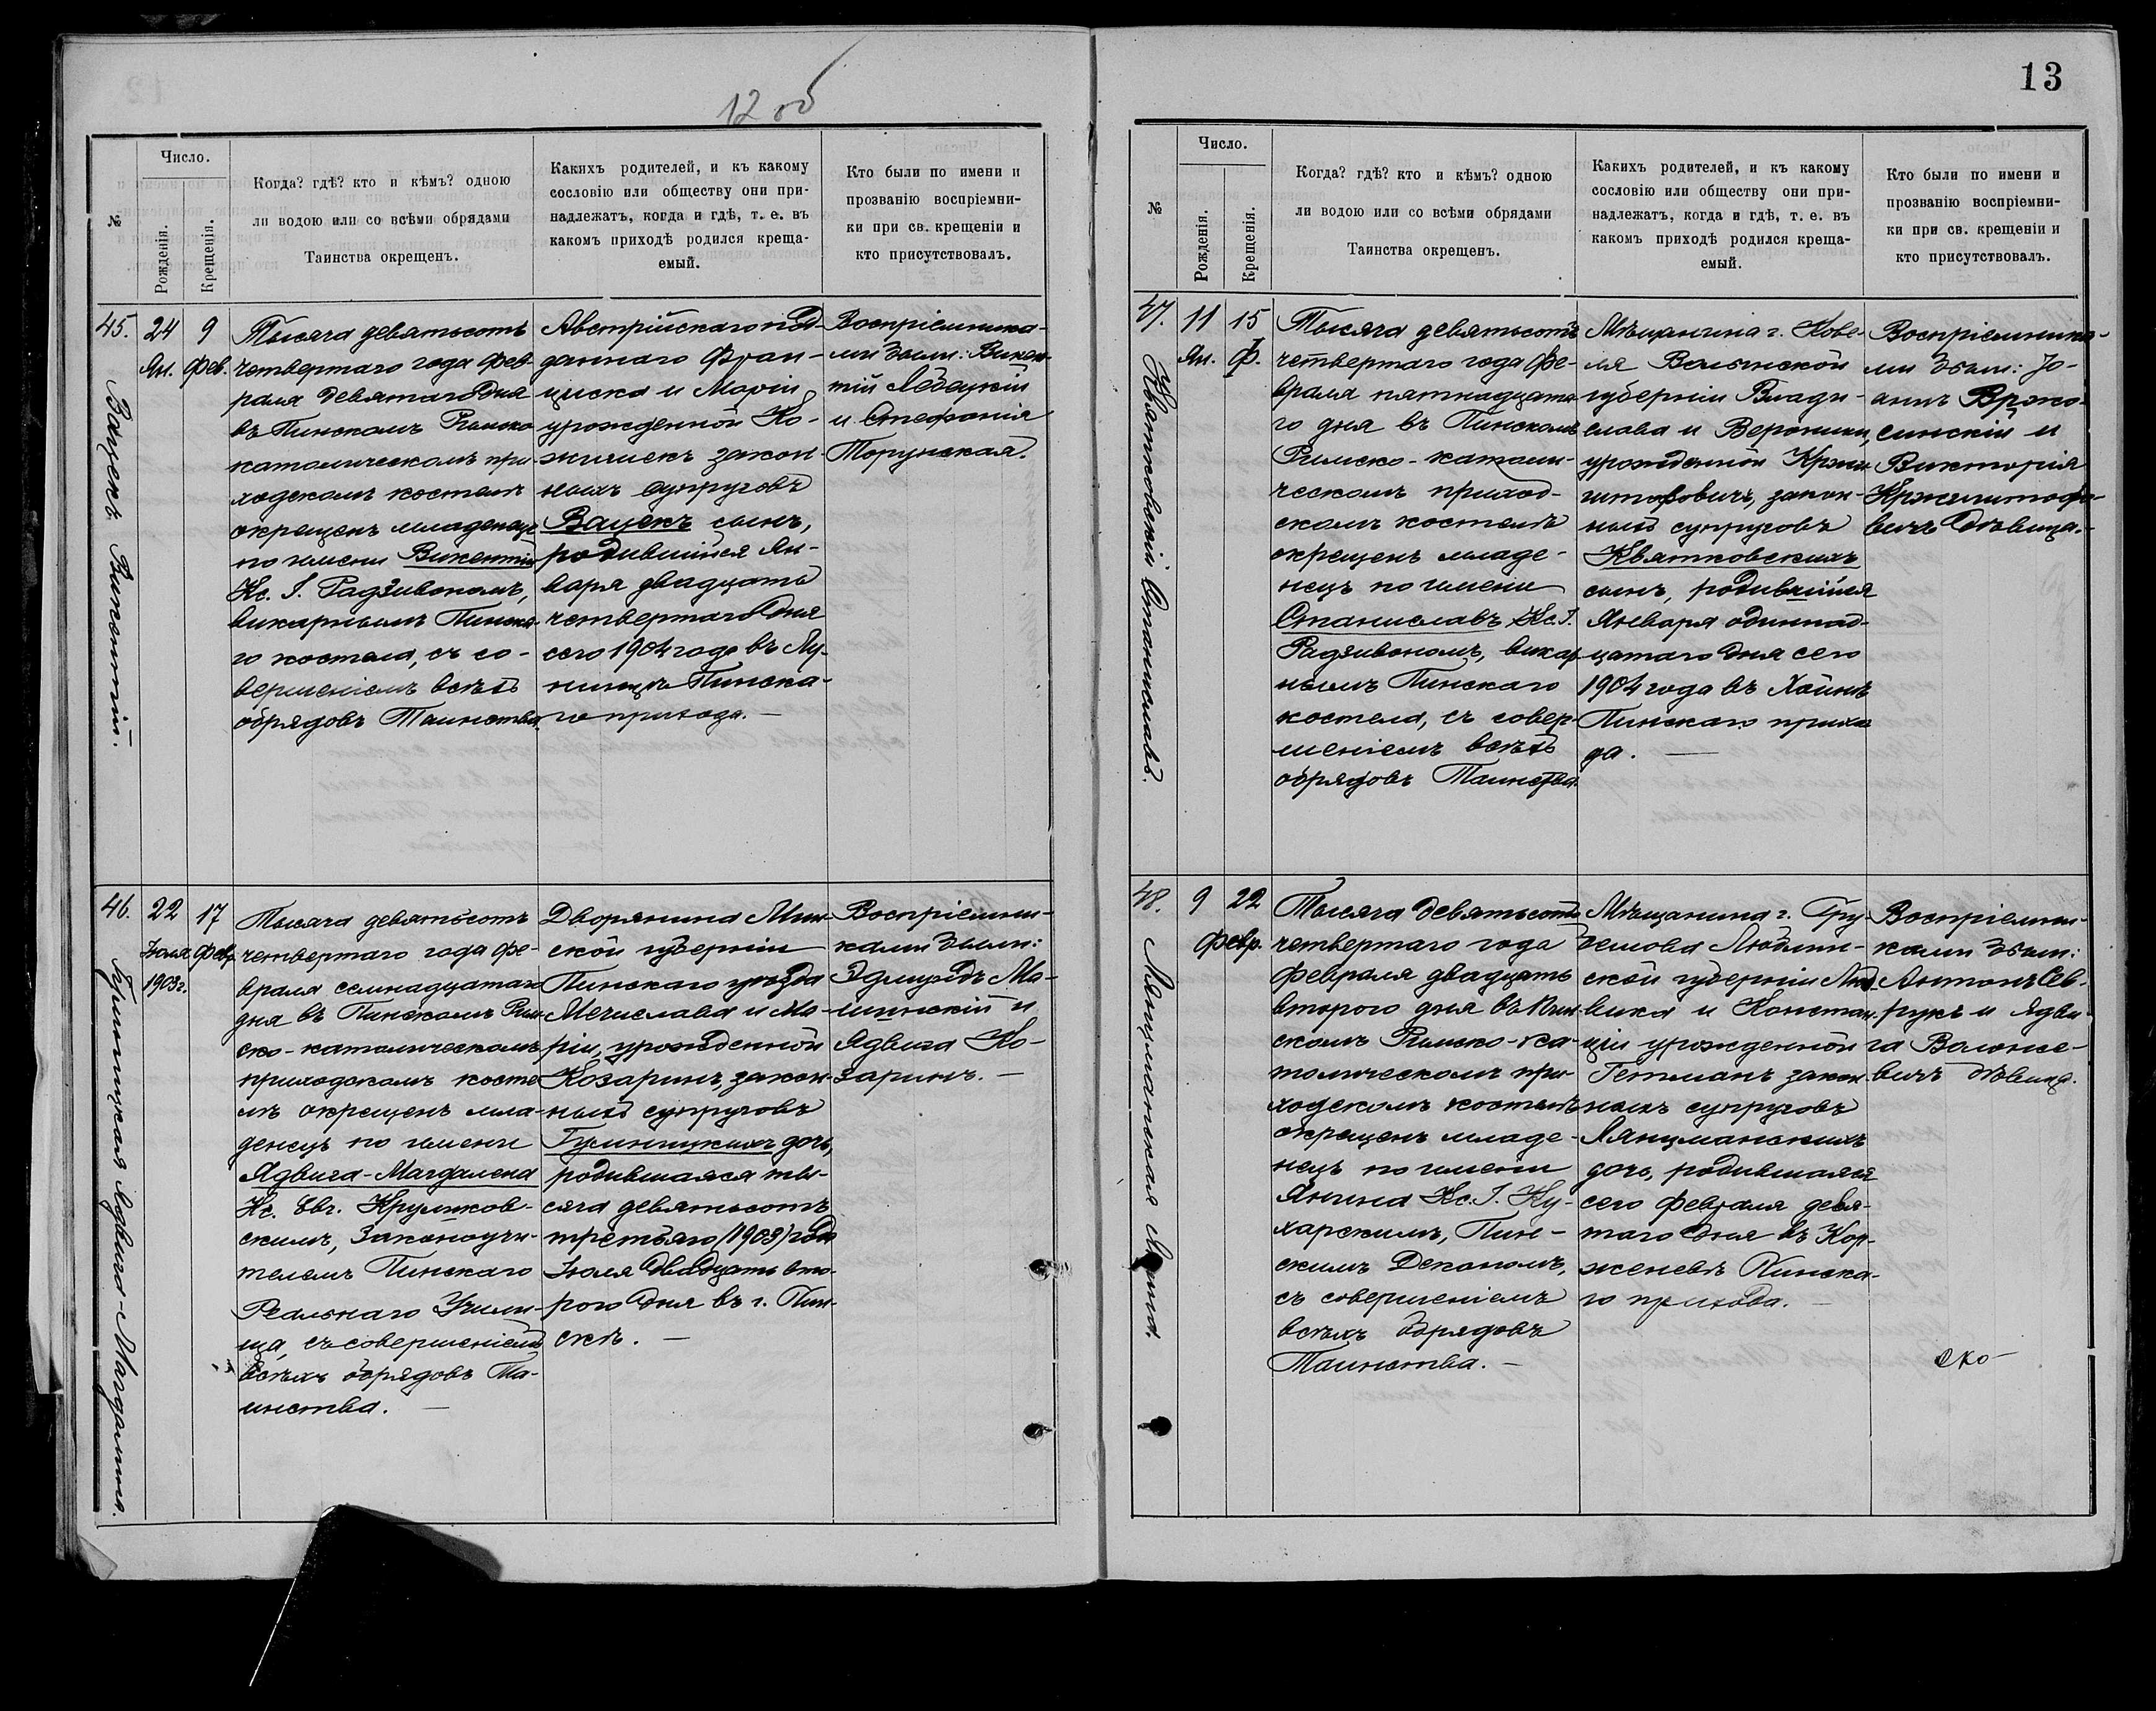 12 об
№
Число.
Рожденія.
Крещенія.
Когда? гдѣ? кто и кѣмъ? одною
ли водою или со всѣми обрядами
Таинства окрещенъ.
Какихъ родителей, и къ какому
сословію или обществу они при-
надлежатъ, когда и гдѣ, т. е. въ
какомъ приходѣ родился креща-
емый.
Кто были по имени и
прозванію воспріемни-
ки при св. крещеніи и
кто присутствовалъ.
45.
Вацекъ Викентій.
24
Ян.
9
Фев.
Тысяча девятьсотъ
четвертаго года Фев-
раля девятаго дня
въ Пинскомъ Римско
католическомъ при-
ходскомъ костелѣ
окрещенъ младенецъ
по имени Викентій
Кс. І. Радзивономъ,
викарнымъ Пинска-
го костела, съ со-
вершеніемъ всѣхъ
обрядовъ Таинства.
Австрійскаго под-
даннаго Фран-
циска и Маріи
урожденной Ко-
жишекъ закон-
ныхъ супруговъ
Вацекъ сынъ,
родившійся Ян-
варя двадцать
четвертаго дня
сего 1904 года въ Лу-
нинцѣ Пинска-
го прихода. —
Воспріемника-
ми были: Викен-
тій Лебецкій
и Стефанія
Торунская.
46.
Гусиницкая Ядвига-Магдалина.
22
Іюля
1903 г.
17
Февр.
Тысяча девятьсотъ
четвертаго года Фе-
враля семнадцатаго
дня въ Пинскомъ Рим-
ско-католическомъ
приходскомъ косте
лѣ окрещенъ мла-
денецъ по имени
Ядвига-Магдалена
Кс. Евг. Круликов-
скимъ, Законоучи-
телемъ Пинскаго
Реальнаго Учили-
ща, съ совершеніемъ
всѣхъ обрядовъ Та-
инства. —
Дворянина Мин-
ской губерніи
Пинскаго уѣзда
Мечислава и Ма-
ріи, урожденной
Козаринъ, закон-
ныхъ супруговъ
Гусиницкихъ дочь,
родившаяся ты-
сяча девятьсотъ
третьяго (1903) года
Іюля двадцать вто-
рого дня въ г. Пин-
скѣ. —
Воспріемни-
ками были:
Эдмундъ Ма-
шинскій и
Ядвига Ко-
заринъ. —
13
№
Число.
Рожденія.
Крещенія.
Когда? гдѣ? кто и кѣмъ? одною
ли водою или со всѣми обрядами
Таинства окрещенъ.
Какихъ родителей, и къ какому
сословію или обществу они при-
надлежатъ, когда и гдѣ, т. е. въ
какомъ приходѣ родился креща-
емый.
Кто были по имени и
прозванію воспріемни-
ки при св. крещеніи и
кто присутствовалъ.
47.
Квятковскій Станиславъ.
11
Ян.
15
Ф.
Тысяча девятьсотъ
четвертаго года Фе-
враля пятнадцата-
го дня въ Пинскомъ
Римско-католи-
ческомъ приход-
скомъ костелѣ
окрещенъ младе-
нецъ по имени
Станиславъ Кс. І.
Радзивономъ, викар-
нымъ Пинскаго
костела, съ совер-
шеніемъ всѣхъ
обрядовъ Таинства.
Мѣщанина г. Кове-
ля Волынской
губерніи Влади-
слава и Вероники,
урожденной Кржи-
штофовичъ, закон-
ныхъ супруговъ
Квятковскихъ
сынъ, родившійся
Января одиннад-
цатаго дня сего
1904 года въ Хойнѣ
Пинскаго прихо
да. —
Воспріемника-
ми были: Іо-
аннъ Вржо-
синскій и
Викторія
Кржиштофо-
вичъ дѣвица.
48.
Лянцманьская Янина.
9
22
Февр.
Тысяча девятьсотъ
четвертаго года
Февраля двадцать
второго дня въ Пин-
скомъ Римско-ка-
толическомъ при-
ходскомъ костелѣ
окрещенъ младе-
нецъ по имени
Янина Кс. І. Ку-
харскимъ, Пин-
скимъ Деканомъ,
съ совершеніемъ
всѣхъ обрядовъ
Таинства. —
Мѣщанина г. Гру-
бешова Люблин-
ской губерніи Люд-
вика и Констан-
ціи урожденной
Гетманъ закон-
ныхъ супруговъ
Лянцманьскихъ
дочь, родившаяся
сего Февраля девя-
таго дня въ Кор-
женевѣ Пинска-
го прихода. —
Воспріемни-
ками были:
Антонъ Сев-
рукъ и Ядви-
га Волынсе-
вичъ дѣвица.
ско-